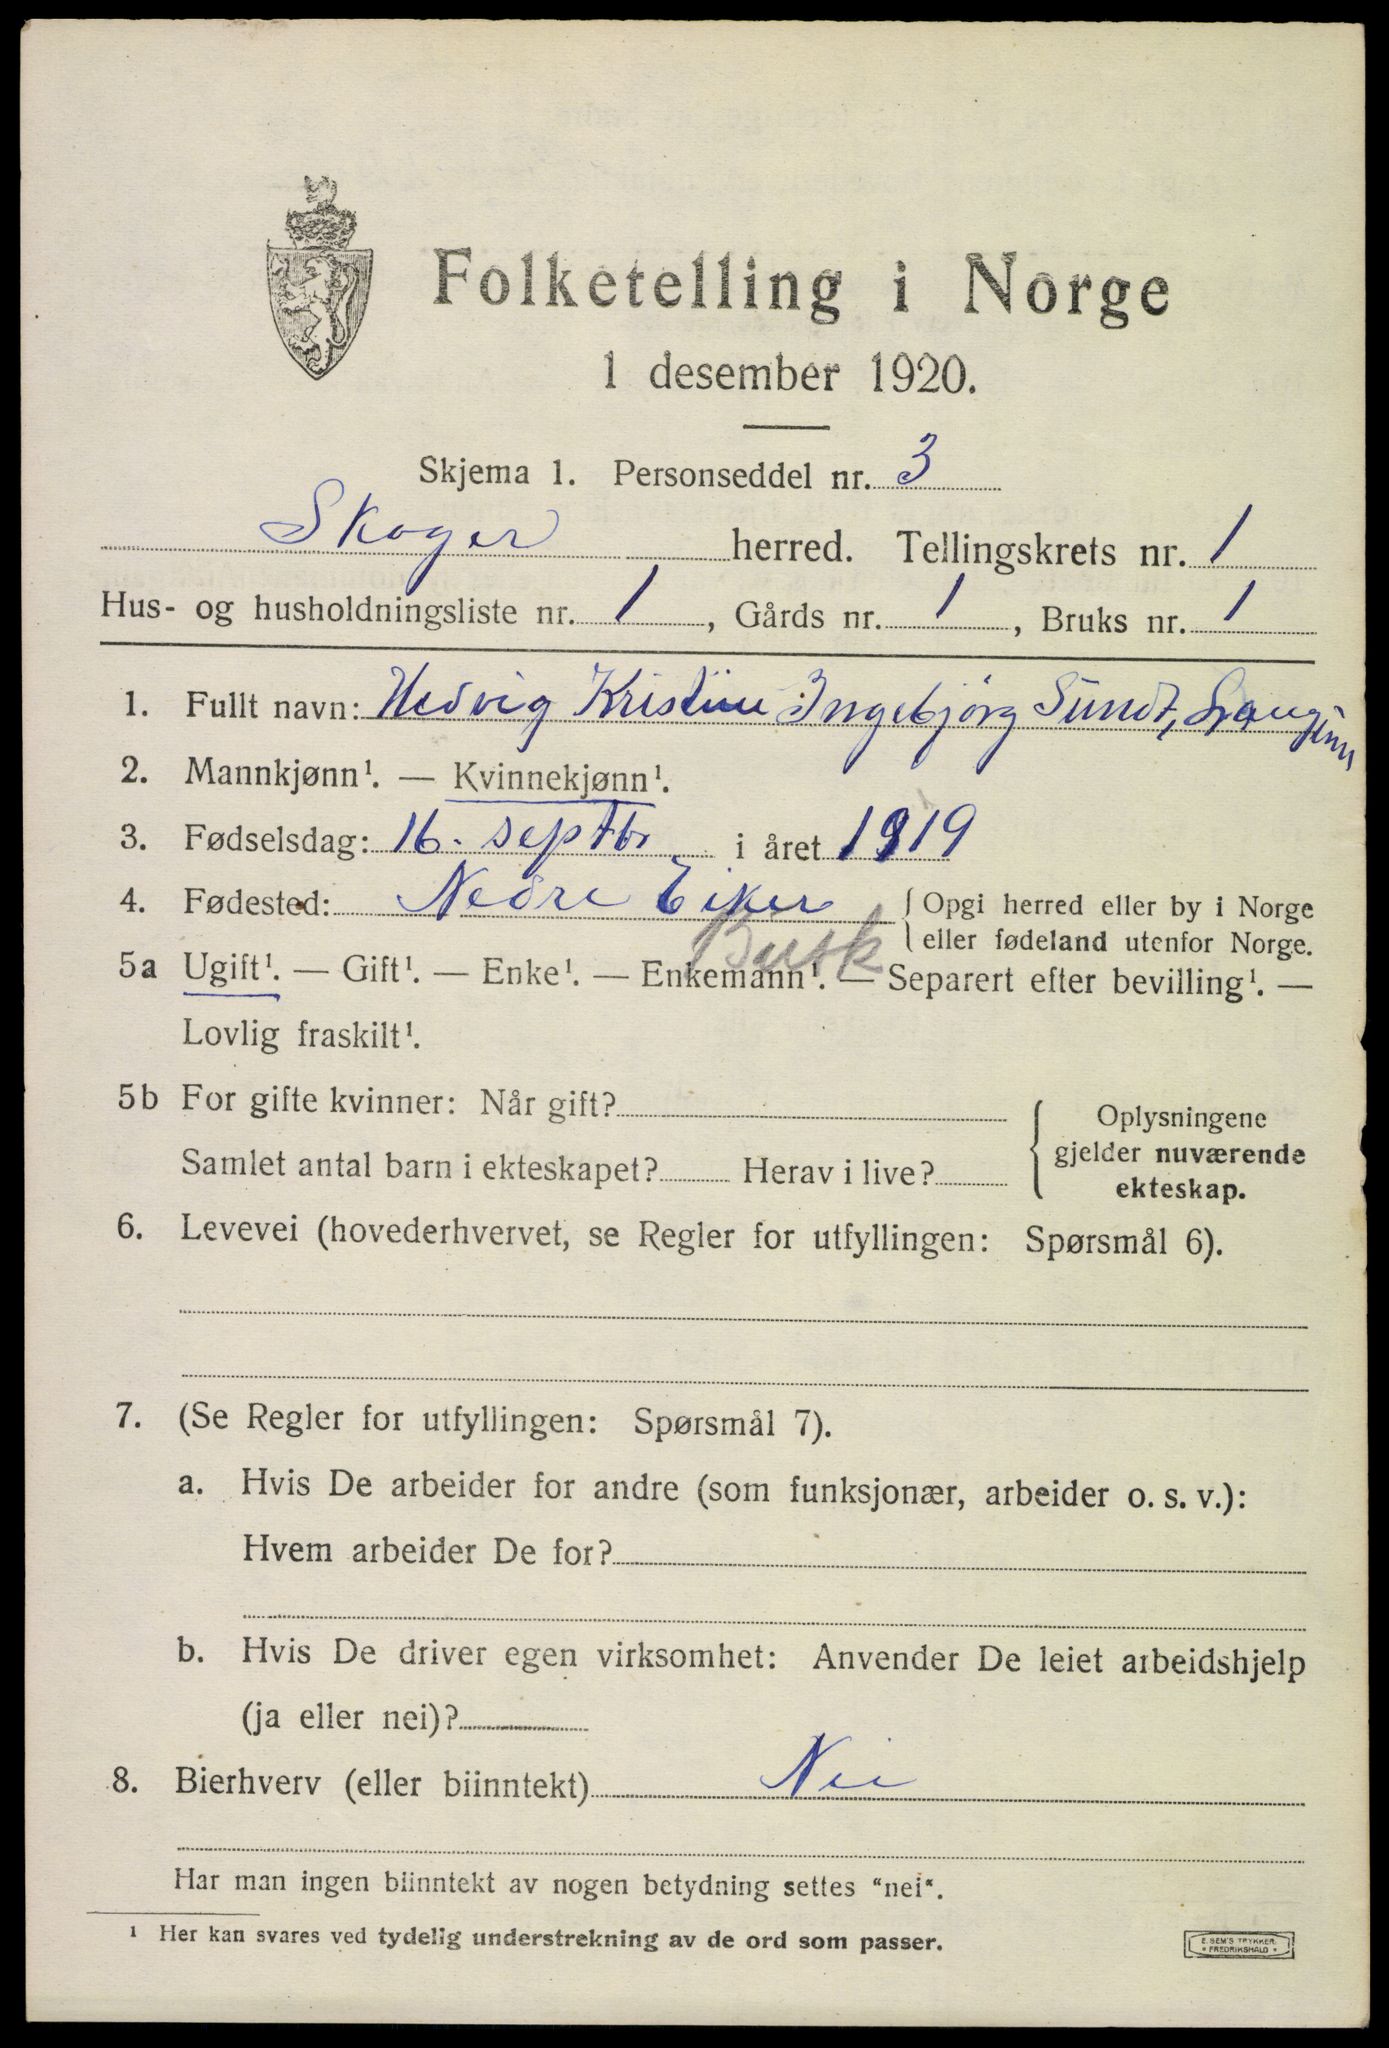 Folketelling i Norge
1 desember 1920.
Skjema 1. Personseddel nr. 3
Skoger herred. Tellingskrets nr. 1
Hus- og husholdningsliste nr. 1, Gårds nr. 1, Bruks nr. 1
1. Fullt navn: Hedvig Kristine Ingebjørg Sundt,
2. Mannkjønn¹. — Kvinnekjønn¹.
3. Fødselsdag: 16. septbr i året 1919
4. Fødested: Nedre Eiker { Opgi herred eller by i Norge
eller fødeland utenfor Norge.
Busk
5a Ugift¹. — Gift¹. — Enke¹. — Enkemann¹. — Separert efter bevilling¹. —
Lovlig fraskilt¹.
5b For gifte kvinner: Når gift?
Samlet antal barn i ekteskapet? Herav i live?
{ Oplysningene
gjelder nuværende
ekteskap.
6. Levevei (hovederhvervet, se Regler for utfyllingen: Spørsmål 6).
7. (Se Regler for utfyllingen: Spørsmål 7).
a. Hvis De arbeider for andre (som funksjonær, arbeider o. s. v.):
Hvem arbeider De for?
b. Hvis De driver egen virksomhet: Anvender De leiet arbeidshjelp
(ja eller nei)?
8. Bierhverv (eller biinntekt) Nei
Har man ingen biinntekt av nogen betydning settes "nei".
¹ Her kan svares ved tydelig understrekning av de ord som passer.
E. SEM'S TRYKKERI
* FREDRIKSHALD *